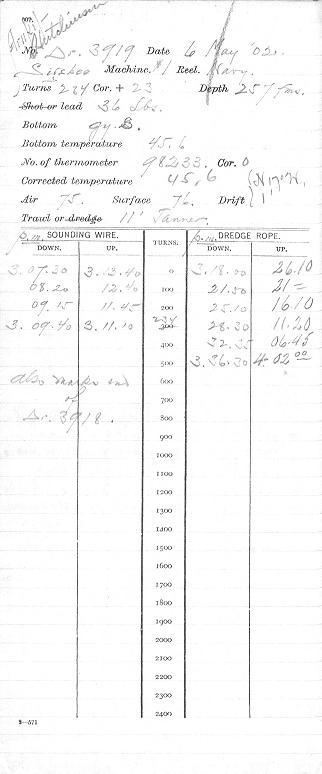 907.
Hutchinson
No. Dr. 3919 Date 6 May '02.
Sigsbee Machine. #1 Reel. Navy.
Turns 234 Cor. + 23 Depth 257 fms.
Shot or lead 36 lbs.
Bottom gy. S.
Bottom temperature 45.6
No. of thermometer 98233. Cor. 0
Corrected temperature 45.6
Air 75. Surface 76. Drift
Trawl or dredge 11' Tanner.
p.m. SOUNDING WIRE. TURNS. p.m. DREDGE ROPE.
DOWN. UP. DOWN. UP.
3.07.30 3.13.40 0 3.18.00 26.10
08.20 12.40 100 21.50 21=
09.15 11.45 200 25.10 16.10
3.09.40 3.11.10 234 300 28.30 11.20
400 32.35 06.45
500 3.36.30 4.02.00
also marks end 600
of 700
Dr. 3918. 800
900
1000
1100
1200
1300
1400
1500
1600
1700
1800
1900
2000
2100
2200
2300
2400
3—571